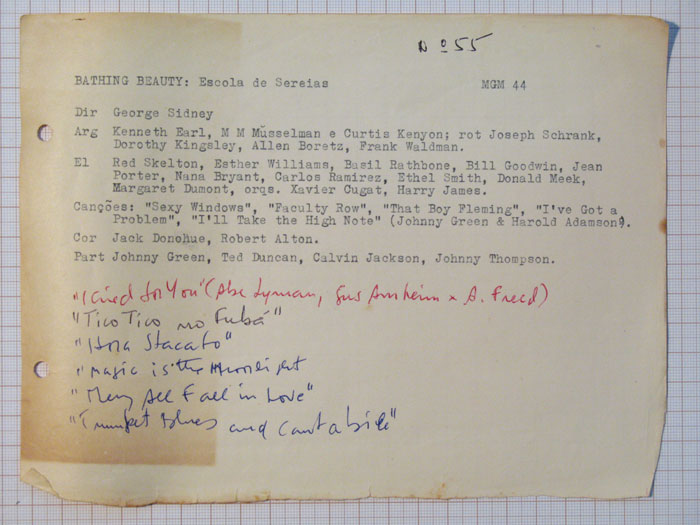 Nº 55
BATHING BEAUTY: Escola de Sereias MGM 44
Dir George Sidney
Arg Kenneth Earl, M M Musselman e Curtis Kenyon; rot Joseph Schrank,
Dorothy Kingsley, Allen Boretz, Frank Waldman.
El Red Skelton, Esther Williams, Basil Rathbone, Bill Goodwin, Jean
Porter, Nana Bryant, Carlos Ramirez, Ethel Smith, Donald Meek,
Margaret Dumont, orqs. Xavier Cugat, Harry James.
Canções: "Sexy Windows", "Faculty Row", "That Boy Fleming", "I've Got a
Problem", "I'll Take the High Note" (Johnny Green & Harold Adamson).
Cor Jack Donohue, Robert Alton.
Part Johnny Green, Ted Duncan, Calvin Jackson, Johnny Thompson.
"I Cried for You" (Abe Lyman, Gus Arnheim x A. Freed)
"Tico Tico no Fubá"
"Hora Stacato"
"Magic is the Moonlight
"They All Fall in Love"
"Trumpet Blues and Cantabile"